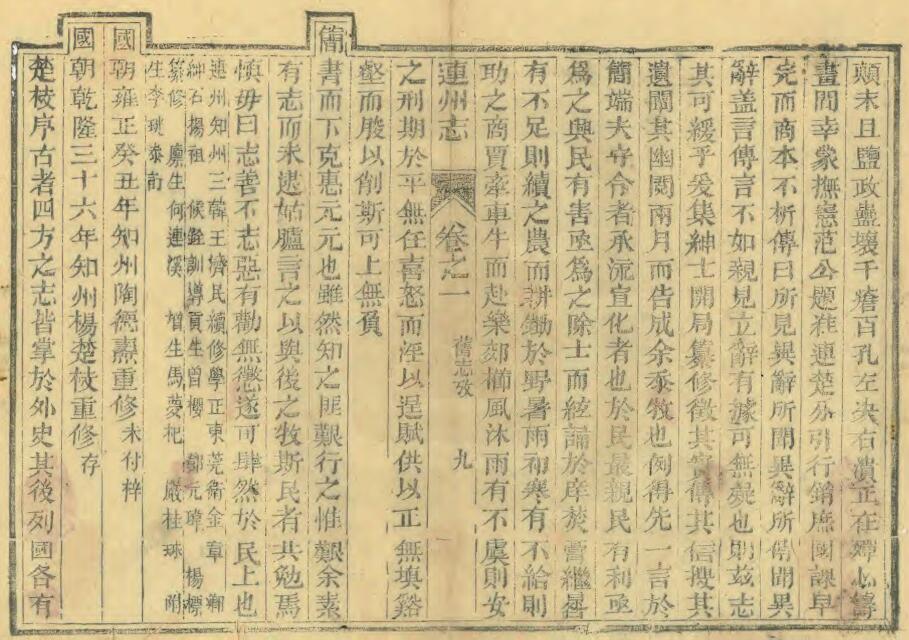 顛末且鹽政蠱壞千瘡百孔左決右潰正在殫心籌
畫間幸蒙撫憲范公題准連楚分引行銷庶國課早
完而商本不折傳曰所見異辭所聞異辭所傳聞異
辭盖言傳言不如親見立辭有據可無疑也則茲志
其可緩乎爰集紳士開局纂修徵其實傳其信搜其
遺闡其幽閱兩月而告成余忝牧也例得先一言於
簡端夫守令者承流宣化者也於民最親民有利亟
爲之興民有害亟爲之除士而絃誦於庠焚膏繼晷
有不足則續之農而耕鋤於野暑雨祁寒有不給則
助之商賈牽車牛而赴樂郊櫛風沐雨有不虞則安
連州志 卷之一 舊志攷 九
之刑期於平無任喜怒而淫以逞賦供以正無填谿
壑而朘以削斯可上無負
簡
書而下克惠元元也雖然知之匪艱行之惟艱余素
有志而未逮姑臚言之以與後之牧斯民者共勉焉
愼毋曰志善不志惡有勸無懲遂可肆然於民上也
連州知州三韓王濟民續修學正東莞衛金章
紳石楊祖 候銓訓導貢生曾櫻 鄒元瑋 楊標
纂修 廩生 何連溪 增生馬夢杞 嚴桂球 附
生李珖 泰
國
朝雍正癸丑年知州陶德燾重修未付梓
國
朝乾隆三十六年知州楊楚枝重修存
楚枝序古者四方之志皆掌於外史其後列國各有